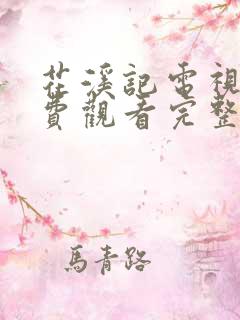 茌溪記電視
費觀看完整
馬青路